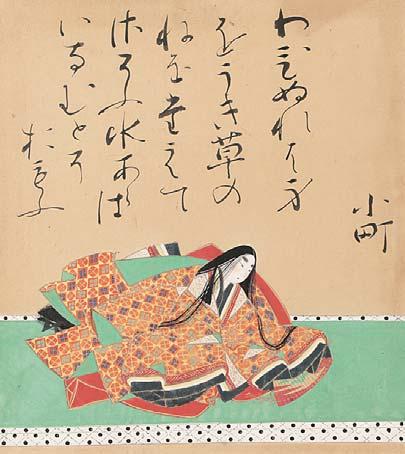 小町
わひぬれは身
をうき草の
ねをたえて
さそふ水あらは
いなむとそ
おもふ